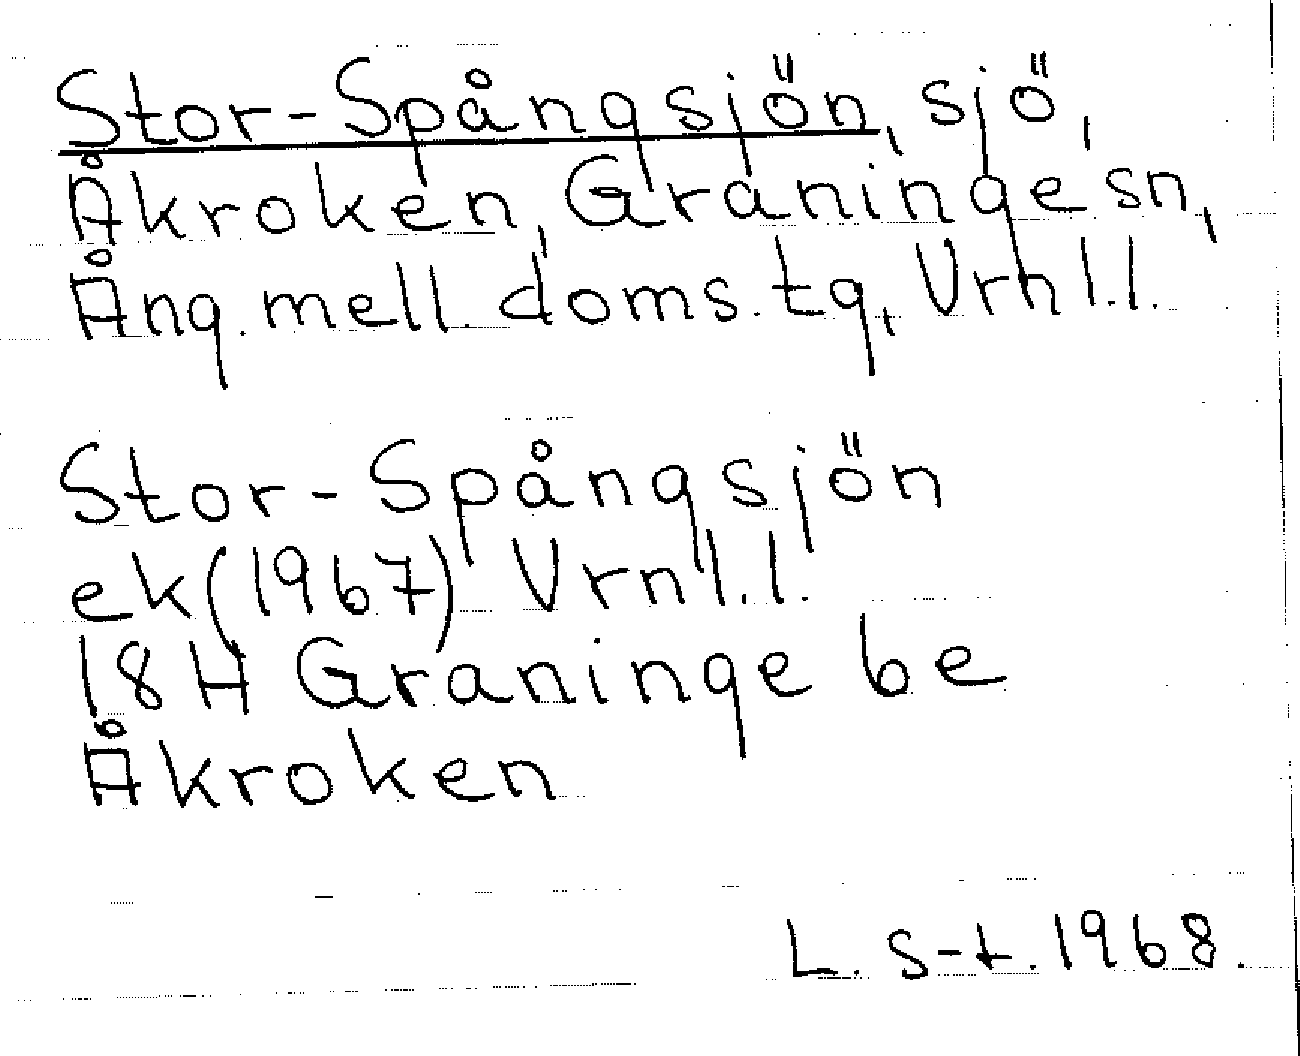 Stor-Spångsjön, sjö,
Åkroken, Graninge sn,
Ång. mell. doms. tg, Vrnl.l.
Stor-Spångsjön
ek (1967) Vrnl.l.
18H Graninge 6e
Åkroken
L. S-t. 1968.